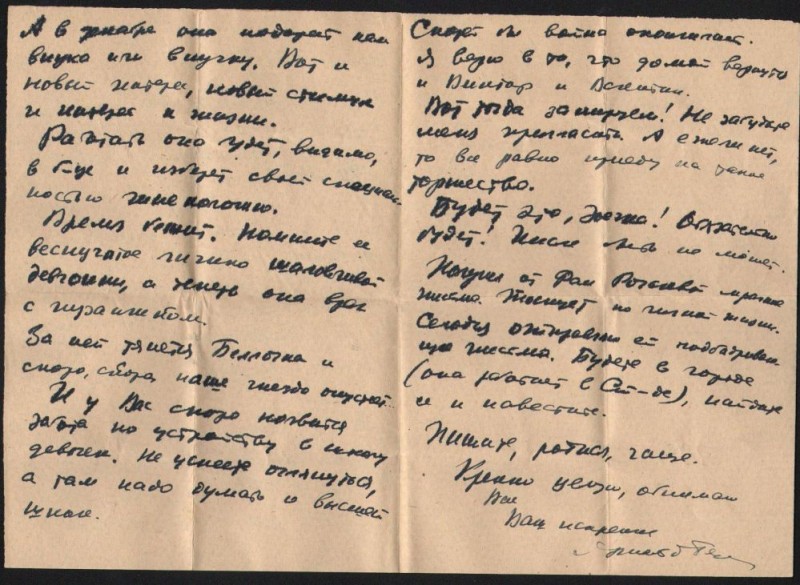 А в декабре она подарит нам
внука или внучку. Вот и
новый интерес, новый стимул
и интерес к жизни.
Работать она будет, видимо,
в б-це и изберет своей специаль-
ностью гинекологию.
Время бежит. Помните ее
веснучатое личико шаловливой
девчонки, а теперь она врач
с
За ней тянется Беллочка и
скоро, скоро наше гнездо опустеет.
И у Вас скоро появится
забота по устройству в школу
девочек. Не успеете оглянуться,
а там надо думать о высшей
школе.
Скорей бы война оканчивалась.
Я верю в то, что домой вернутся
и Виктор и Валентин.
Вот тогда запируем! Не забудьте
меня пригласить. А ежели нет,
то все равно приеду на такое
торжество.
Будет это, Зоечка! Обязательно
будет! Иначе быть не может.
Получил от Фаи мрачное
письмо. Тоскует по личной жизни.
Сегодня отправляю ей подбадриваю-
щее письмо. Будете в городе
(она работает в), найдите
ее и навестите.
Пишите, родная, чаще.
Крепко целую, обнимаю
Вас
Ваш искренне